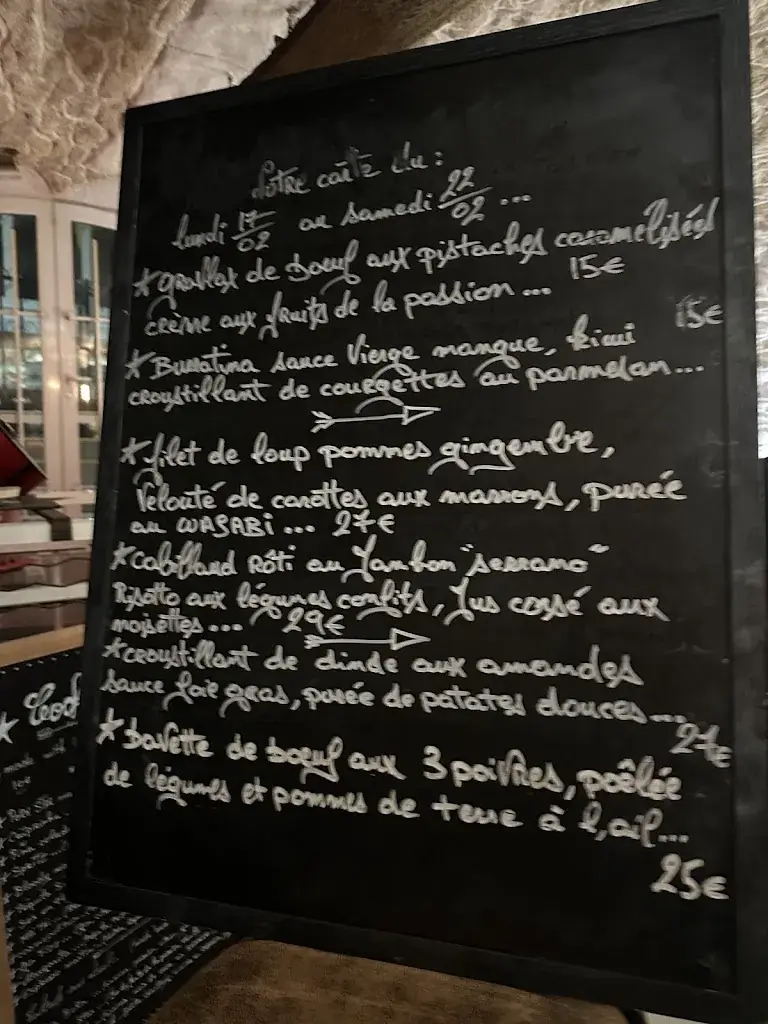 Notre carte du :
lundi 17/02 au samedi 22/02 ...
★ gravlax de boeuf aux pistaches caramelisées
crème aux fruits de la passion ... 15€
★ Burratina sauce Vierge mangue, kiwi 15€
croustillant de courgettes au parmesan ...
★ filet de loup pommes gingembre,
Velouté de carottes aux marrons, purée
au WASABI ... 27€
★ cabillaud Rôti au Jambon "serrano"
Risotto aux légumes confits, Jus corsé aux
noisettes ... 29€
★ croustillant de dinde aux amandes
sauce foie gras, purée de patates douces ...
27€
★ bavette de boeuf aux 3 poivres, poêlée
de légumes et pommes de terre à l'ail ...
25€